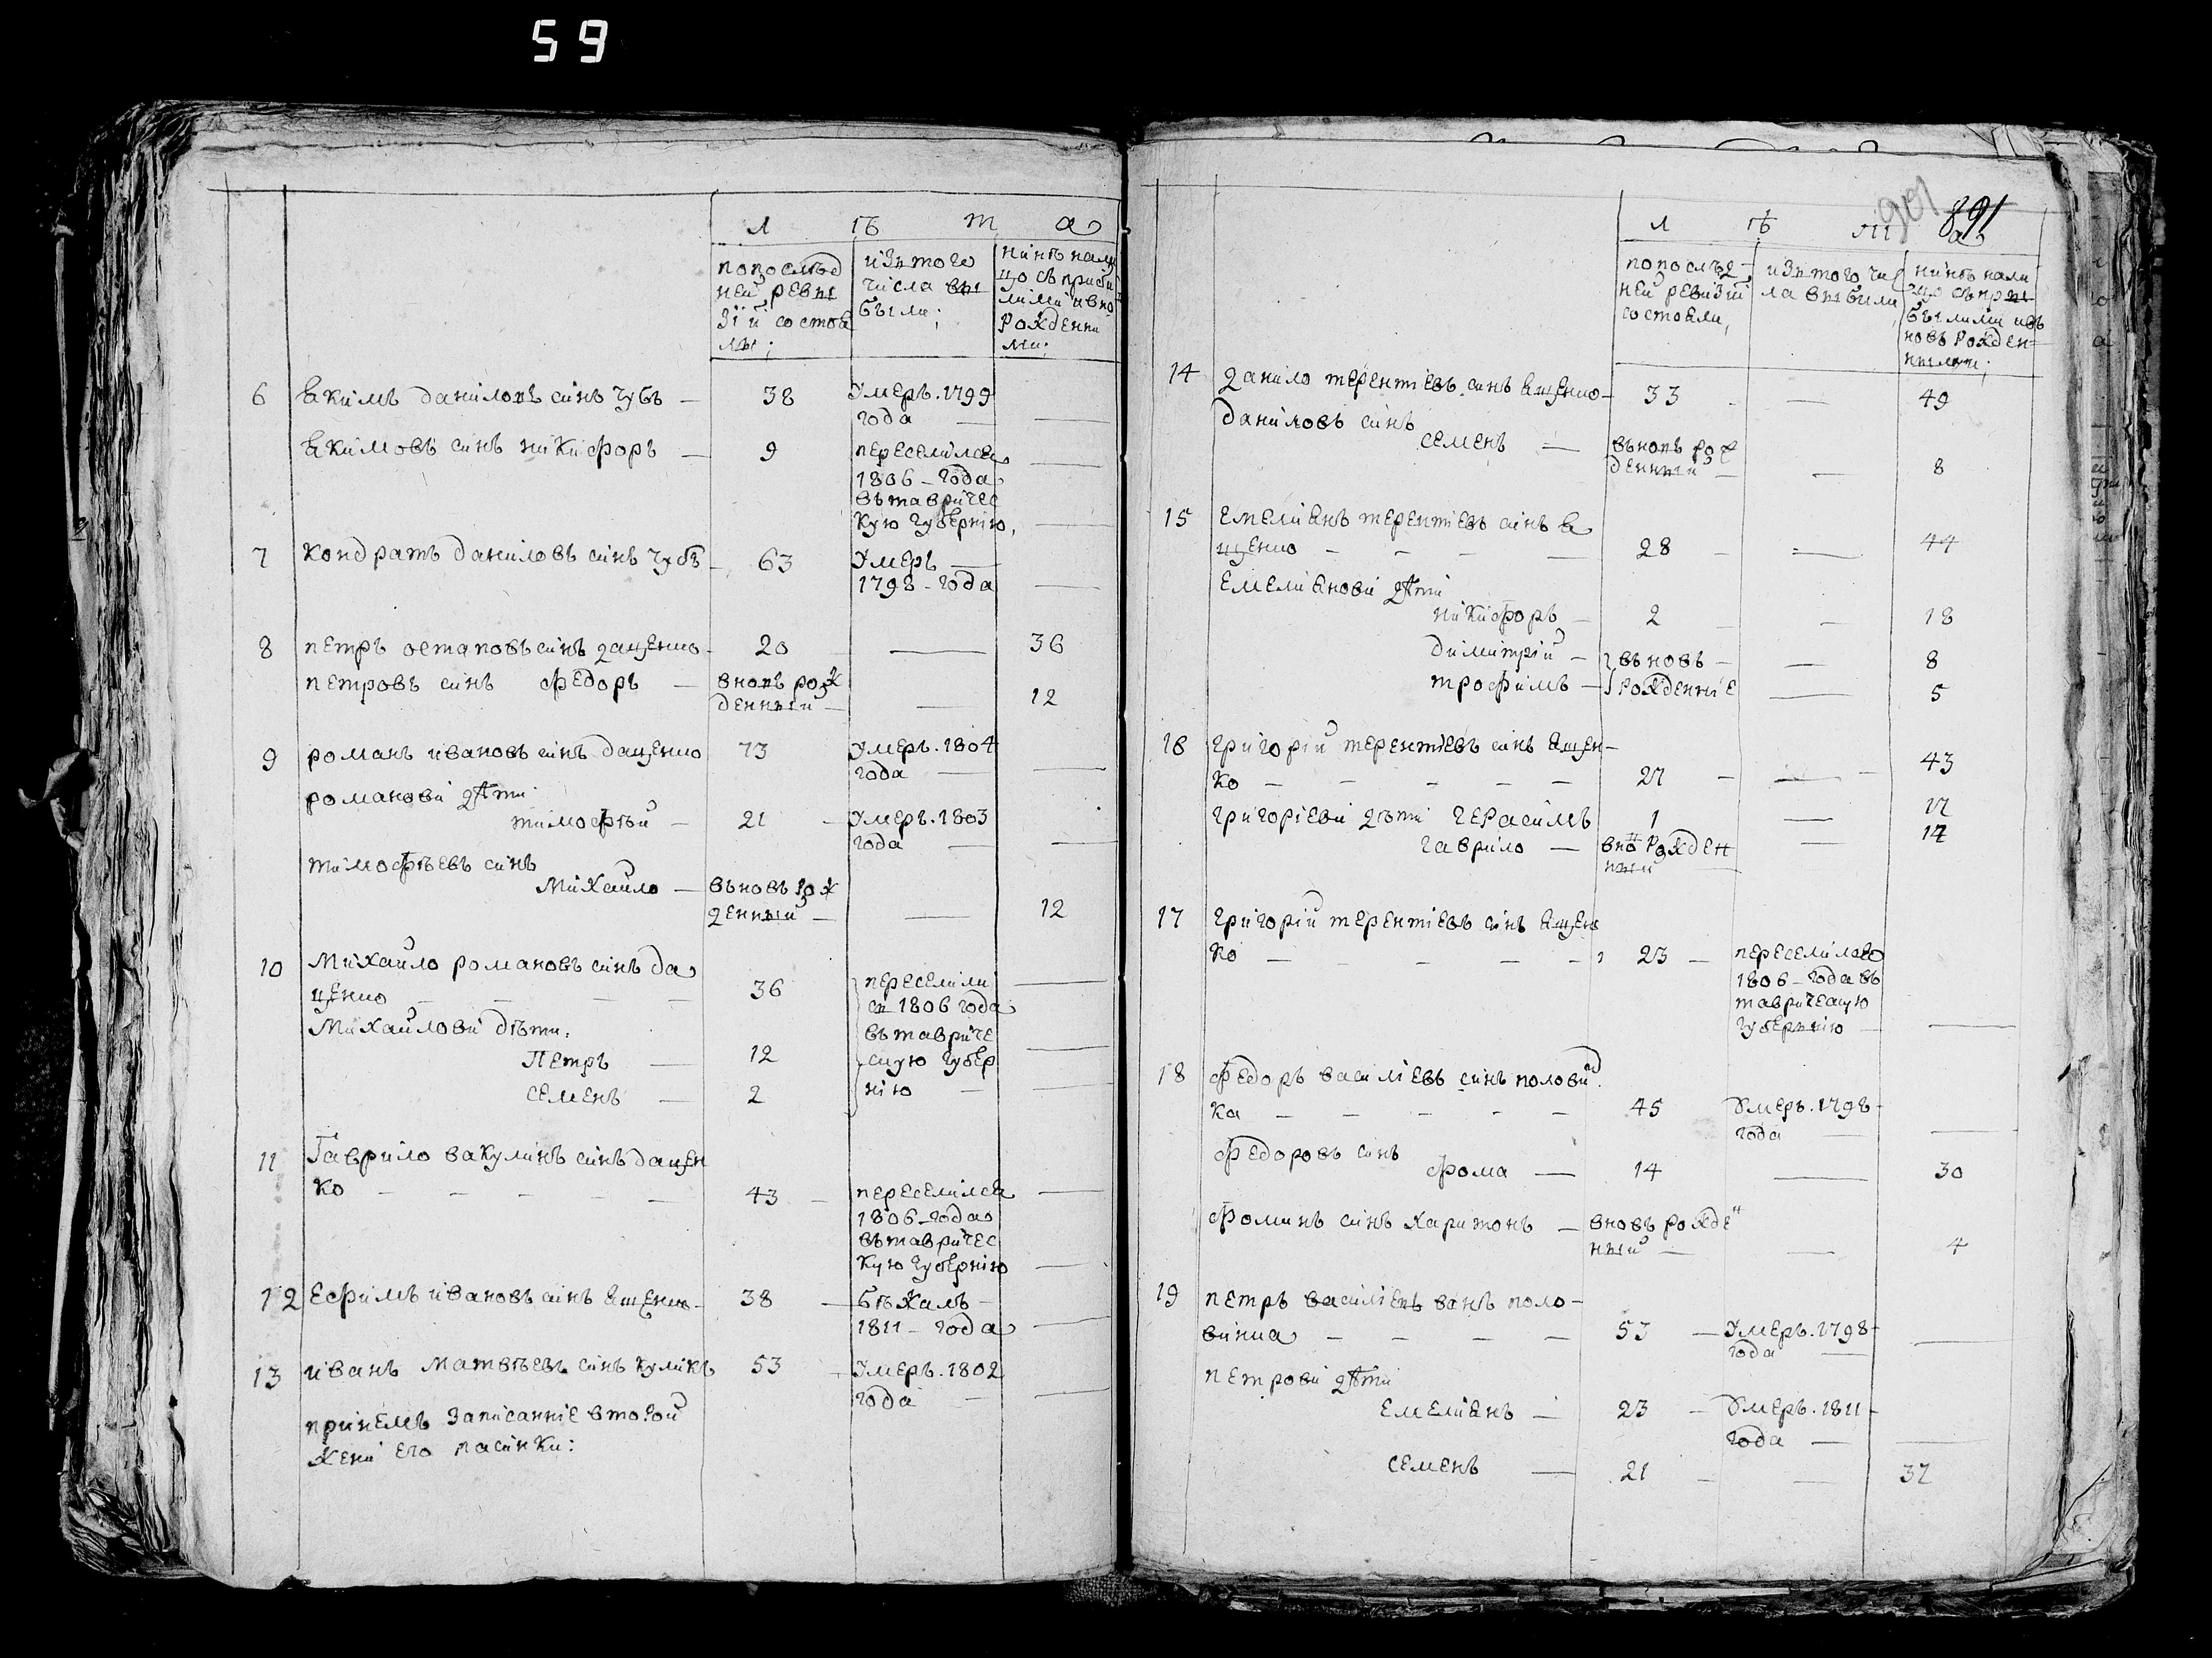 59
л ѣ т а
попослѣд
ней ревы
зіи состоя
лы;
изътого
числа вы
были;
нинѣ нали
цо съприбы
лимы ивно
рожденны
ми;
6 Якимъ даниловъ синъ чубъ — 38 Умеръ. 1799
года — —
Якимовъ синъ никифоръ — 9 переселился —
1806 - года
въ тавричес
кую губернію, —
7 Кондратъ даниловъ синъ чубъ - 63 Умеръ —
1798 - года —
8 петръ остаповъ синъ дащенко - 20 — 36
петровъ синъ федоръ — вновъ рож
денный — — 12
9 романъ ивановъ синъ дащенко 73 Умеръ. 1804
года — —
романови дѣти
тимофѣй — 21 - Умеръ. 1803
года — —
тимофѣевъ синъ
Михайло — вьновъ рож
денный — — 12
10 Михайло романовъ синъ да
щенко — — — — 36 переселили —
ся 1806 года
Михайлови дѣти: вътавриче
Петръ — 12 скую губер —
семенъ — 2 нію — —
11 Гаврило вакулинъ синъ дащен
ко - - - - - 43 - переселился —
1806 - года
вътавричес
кую губернію —
12 Ефимъ ивановъ синъ ященко - 38 — бѣжалъ —
1811 - года —
13 иванъ матвѣевъ синъ куликъ 53 - Умеръ. 1802
года — —
принемъ записанніе второй
жени его пасинки:
901 891
л ѣ т а
попослѣд-
ней ревизій
состояли,
изътого чис
ла выбили,
нинѣ нали
цо съпры
былими ивъ
новъ рожден-
ными;
14 данило терентіевъ синъ ященко - 33 - — 49
даниловъ синъ
семенъ — вьновъ рож
денный — — 8
15 Емеліянъ терентіевъ синъ я
щенко - - - — 28 - — 44
Емеліянови дѣти
никифоръ — 2 - — 18
димитрій — вьновъ — — 8
трофимъ — рожденніе — 5
16 григорій терентіевъ синъ ящен-
ко - - - - - 27 - — - 43
григоріеви дѣти герасимъ 1 — 17
гаврило — вно рожден — 14
ный —
17 григорій терентіевъ синъ ящен
ко - - - - - 23 — переселился
1806 - года въ
таврическую
губернію — —
18 федоръ василіевъ синъ полови
ка - - - - - 45 Умеръ. 1798 -
года — —
федоровъ синъ
фома — 14 — 30
фоминъ синъ харитонъ — вновъ рожден
ный — — 4
19 петръ василіевъ поло-
винка - - - — — Умеръ. 1798 -
года — —
петрови дѣти
емеліянъ — 23 — Умеръ. 1811 -
года — —
семенъ — 21 - — 37